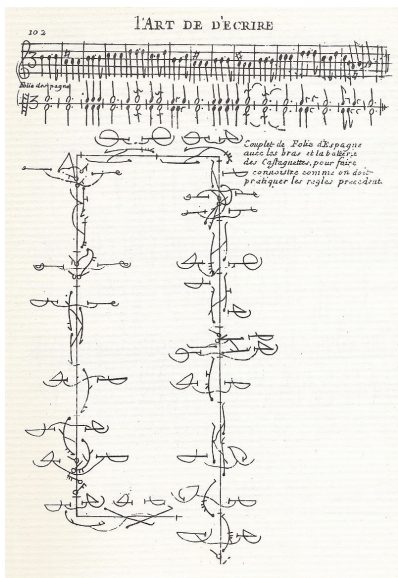 l'ART DE DECRIRE
102
Folie des pagne
Couplet de Folie dEspagne
avec les bras et la batterie
des Castagnettes, pour faire
connoistre comme on doit
pratiquer les regles precedent.